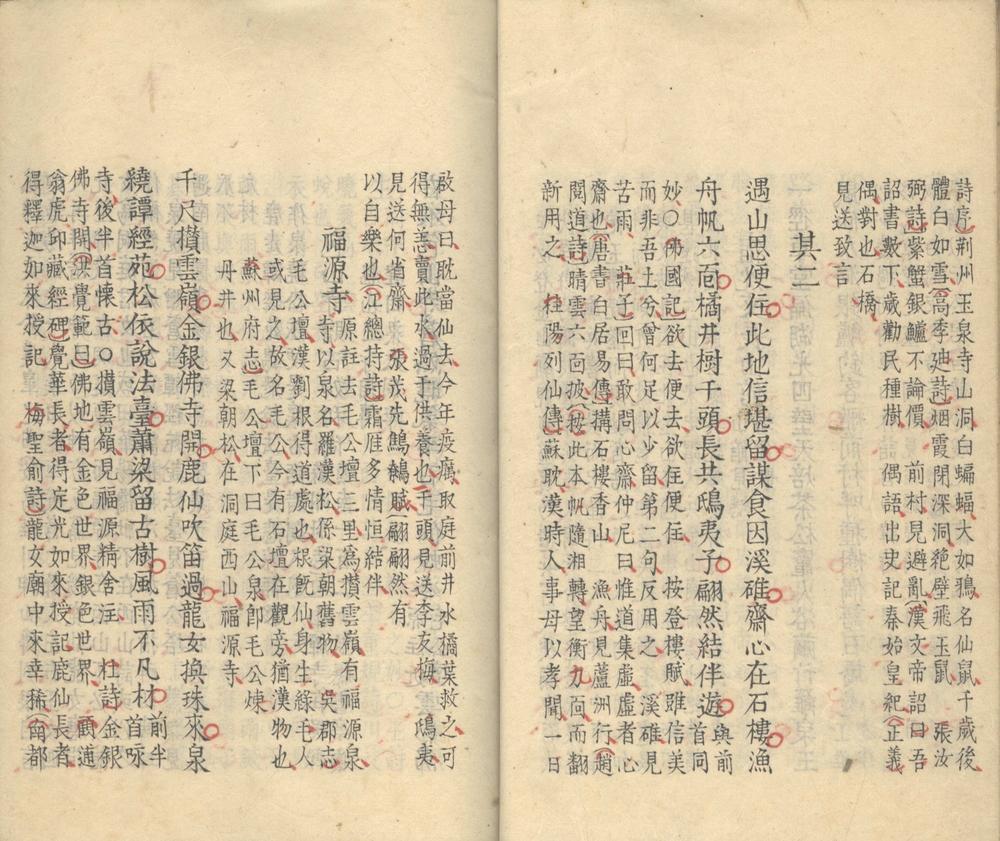 詩序荆州玉泉寺山洞白蝙蝠大如鴉名仙鼠千歲後
體白如雪高季廸詩烟霞閉深洞絶壁飛玉鼠 張汝
弼詩紫蟹銀鱸不論價 前村見避亂漢文帝詔曰吾
詔書數下歲勸民種樹 偶語出史記秦始皇紀正義
偶對也石橋
見送致言
其二
遇山思便住此地信堪留謀食因溪碓齋心在石樓漁
舟帆六面橘井樹千頭長共鴟夷子翩然結伴遊與前首同
妙○佛國記欲去便去欲住便住 按登樓賦雖信美
而非吾土兮曾何足以少留第二句反用之 溪碓見
苦雨 莊子回曰敢問心齋仲尼曰惟道集虛虛者心
齋也唐書白居易傳搆石樓香山 漁舟見蘆洲行趙
閱道詩晴雲六面披按此本帆隨湘轉望衡九面而翻
新用之 桂陽列仙傳蘇耽漢時人事母以孝聞一日
啟母曰耽當仙去今年疫癘取庭前井水橘葉救之可
得無恙賣此水過于供養也千頭見送李友梅 鴟夷
見送何省齋 張茂先鷦鷯賦翩翩然有
以自樂也江總持詩霜厓多情恒結伴
福源寺原註去毛公壇三里爲攢雲嶺有福源泉
寺以泉名羅漢松係梁朝舊物 吳郡志
毛公壇漢劉根得道處也根旣仙身生綠毛人
或見之故名毛公今有石壇在觀旁猶漢物也
蘇州府志毛公壇下曰毛公泉卽毛公煉
丹井也又梁朝松在洞庭西山福源寺
千尺攢雲嶺金銀佛寺開鹿仙吹笛過龍女換珠來泉
繞譚經苑松依說法臺蕭梁留古樹風雨不凡材前半首咏
寺後半首懷古○攢雲嶺見福源精舍注 杜詩金銀
佛寺開洪覺範曰佛地有金色世界銀色世界 酉通
翁虎印藏經碑覺華長者得定光如來授記鹿仙長者
得釋迦如來授記 梅聖俞詩龍女廟中來幸稀甯都